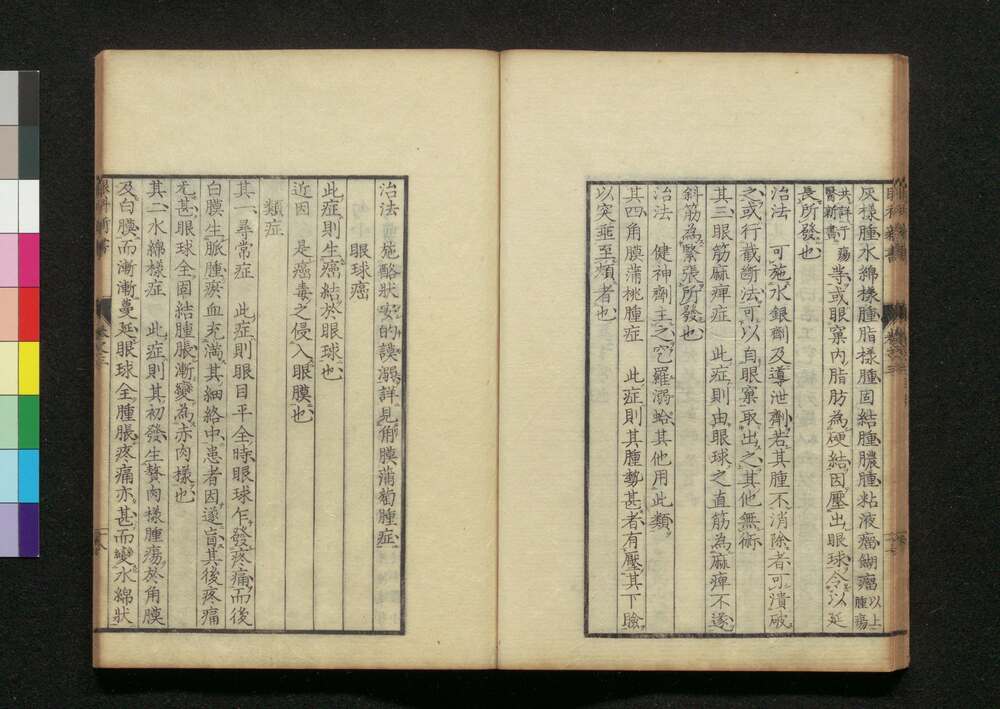 灰樣腫水綿樣腫脂樣腫固結腫膿腫粘液瘤餬瘤以上腫瘍
共詳于瘍醫新書等或眼窠内脂肪為硬結因壓出眼球令以延
長所發也
治法 可施水銀劑及導泄劑若其腫不消除者可潰破
之或行截斷法可以自眼窠取出之其他無術
其三眼筋麻痺症 此症則由眼球之直筋為麻痺不遂
斜筋為緊張所發也
治法 健神劑主之芒羅溺蛤其他用此類
其四角膜蒲桃腫症 此症則其腫勢甚者有壓其下瞼
以突垂至頬者也
治法 施酪狀安的謨溺詳見角膜蒲萄腫症
眼球癌
此症則生癌結於眼球也
近因 是癌毒之侵入眼膜也
類症
其一尋常症 此症則眼目平全時眼球乍發疼痛而後
白膜生脈腫瘀血充満其細絡中患者因遂盲其後疼痛
尤甚眼球全固結腫脹漸變為赤肉樣也
其二水綿樣症 此症則其初發生贅肉樣腫瘍於角膜
及白膜而漸漸蔓延眼球全腫脹疼痛亦甚而變水綿狀